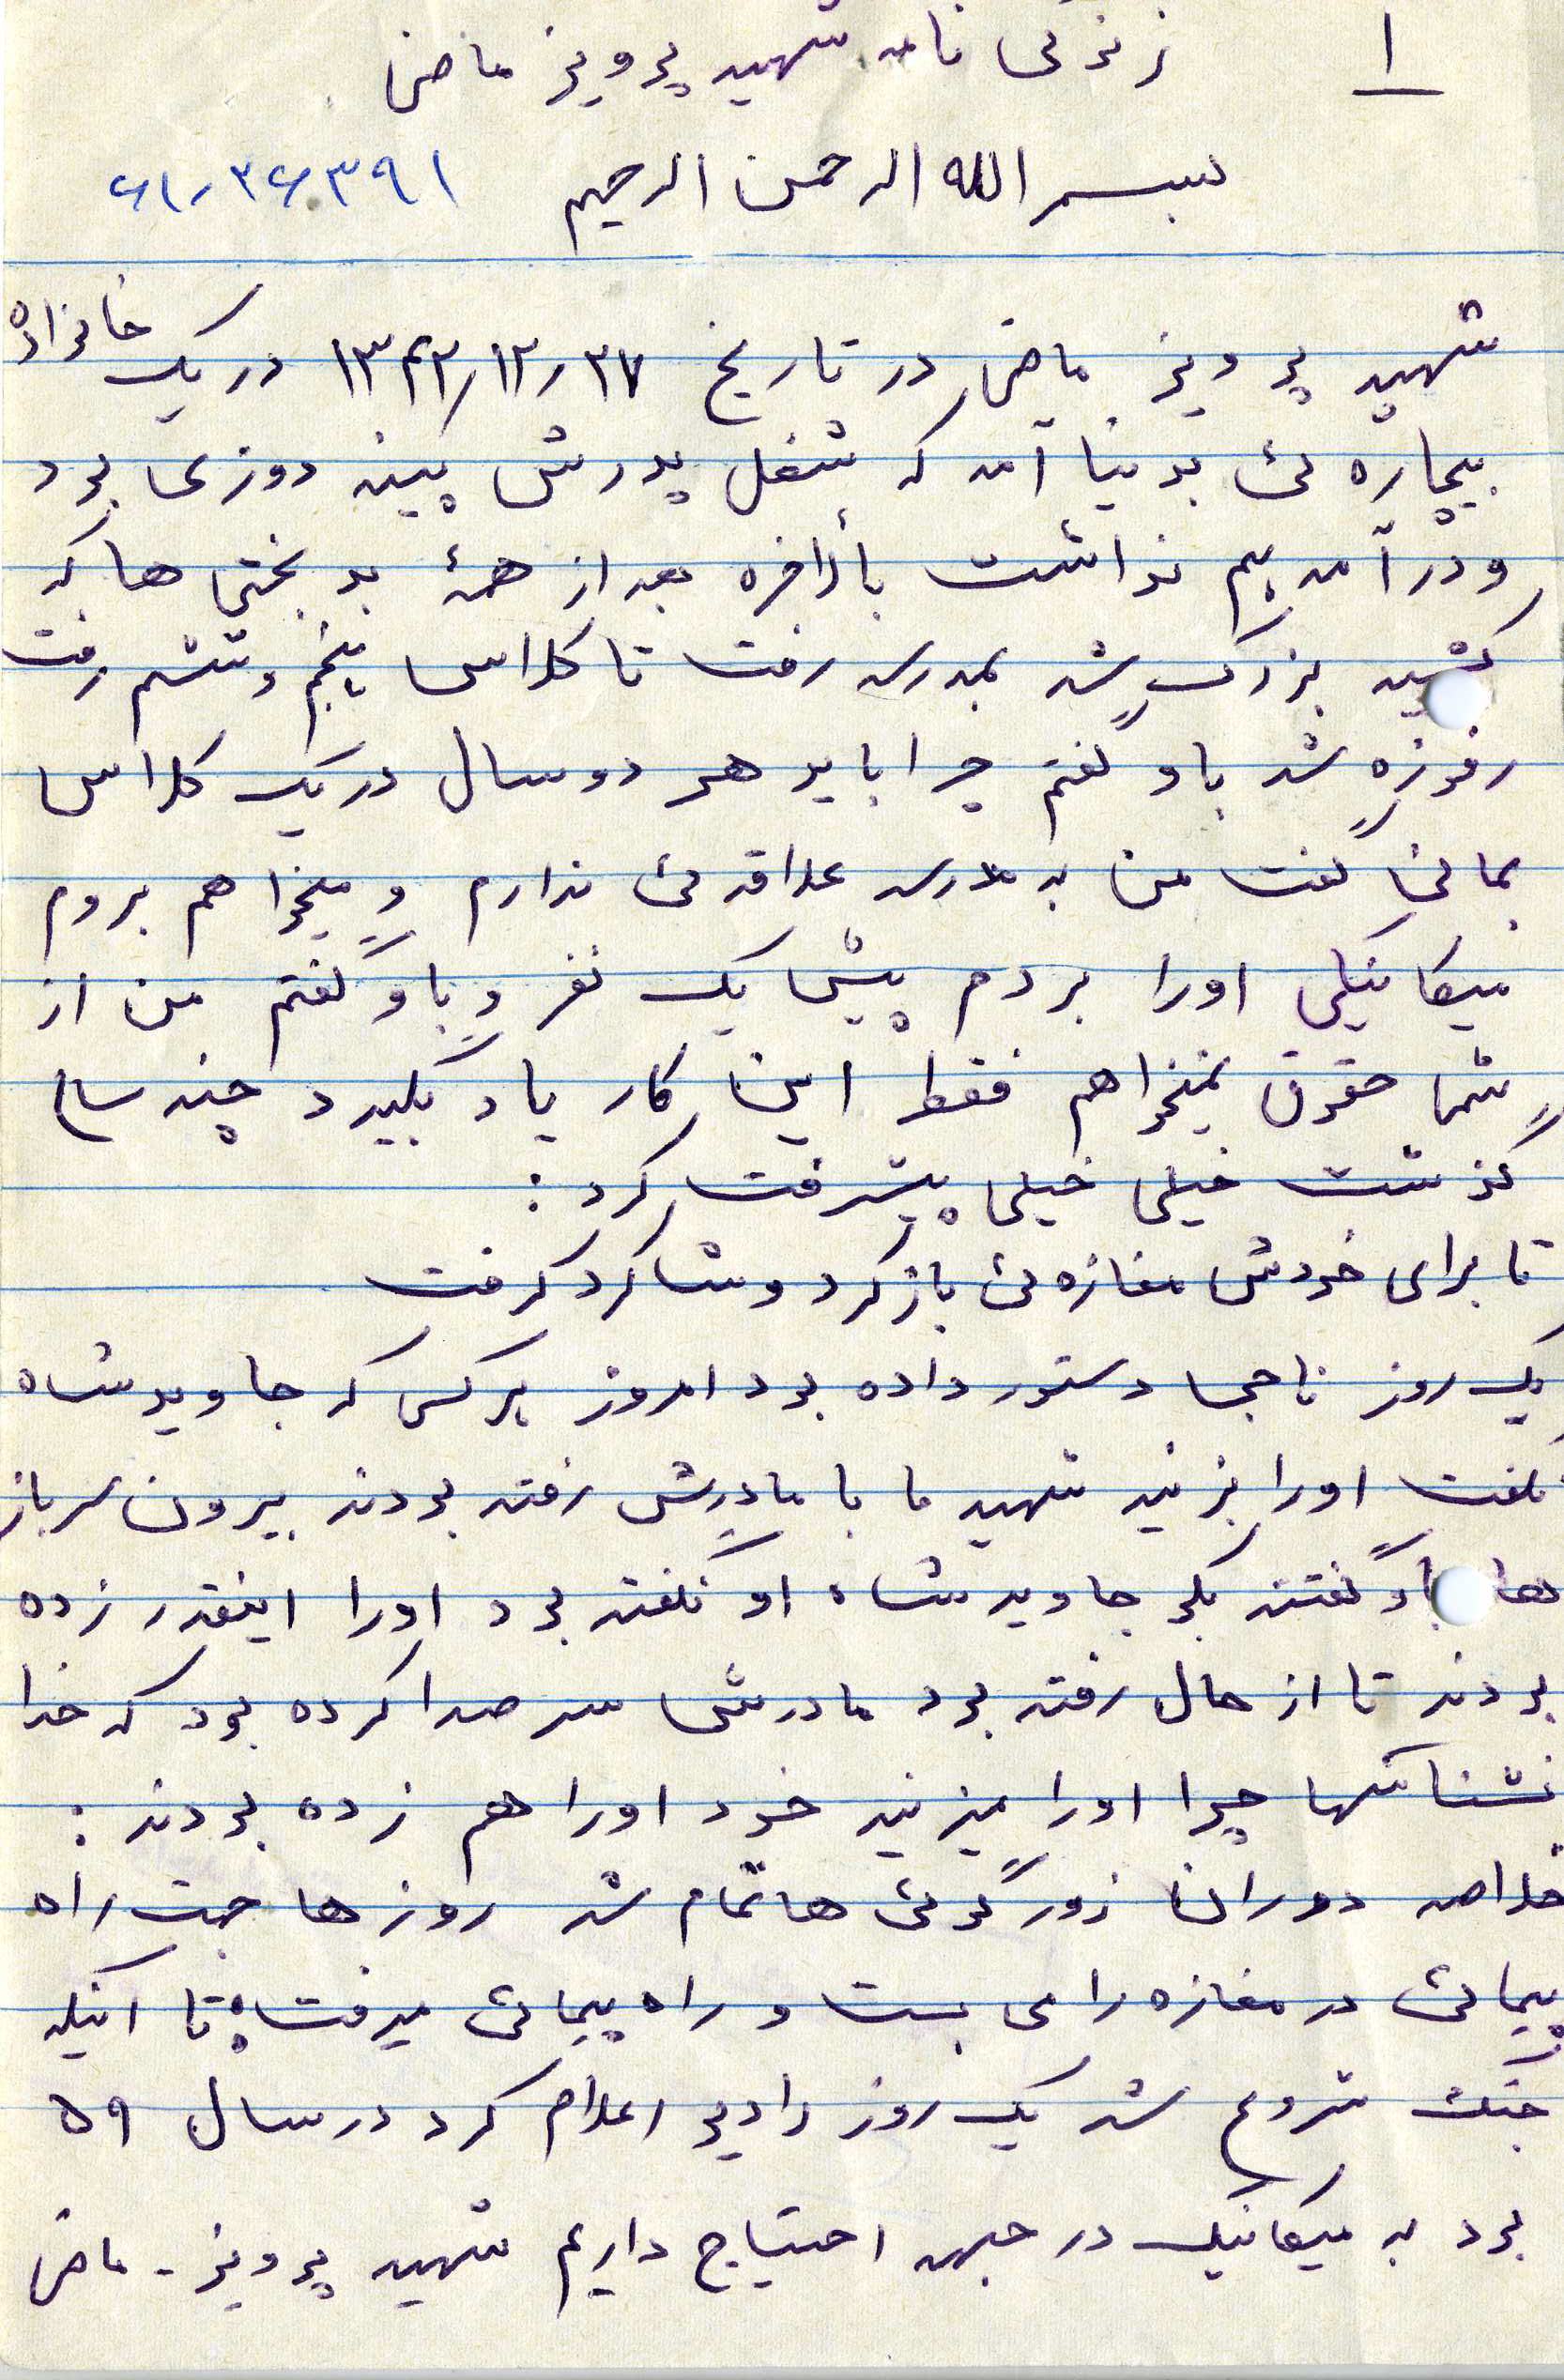 ۱
زندگی نامه شهید پرویز ماضی
بسم الله الرحمن الرحیم ۶۱٫۳۶۳۹۱
شهید پرویز ماضی در تاریخ ۱۳۴۲٫۱۲٫۲۷ در یک خانواده
بیچاره ئی بدنیا آمد که شغل پدرش پینه دوزی بود
و درآمد هم نداشت بألاخره بعد از همهٔ بدبختی ها که
کشید بزرگ شد بمدرسه رفت تا کلاس پنجم و ششم رفت
رفوزه شد باو گفتم چرا باید هر دو سال در یک کلاس
بمانی گفت من به مدرسه علاقه ئی ندارم و میخواهم بروم
میکانیکی اورا بردم پیش یک نفر و باو گفتم من از
شما حقوق نمیخواهم فقط این کار یاد بگیرد چند سال
گذشت خیلی خیلی پیشرفت کرد :
تا برای خودش مغازه ئی باز کرد و شاگرد گرفت
یک روز ناجی دستور داده بود امروز هر کس که جاوید شاه
نگفت اورا بزنید شهید ما با مادرش رفته بودند بیرون سرباز
ها باو گفتند بگو جاوید شاه او نگفته بود اورا اینقدر زده
بودند تا از حال رفته بود مادرش سر صدا کرده بود که خدا
نشناسها چرا اورا میزنید خود اورا هم زده بودند :
خلاصه دوران زورگوئی ها تمام شد روزها جهت راه
پیمائی در مغازه را می بست و راه پیمائی میرفت ؛ تا اینکه
جنگ شروع شد یک روز رادیو اعلام کرد در سال ۵۹
بود به میکانیک در جبهه احتیاج داریم شهید پرویز - ماضی